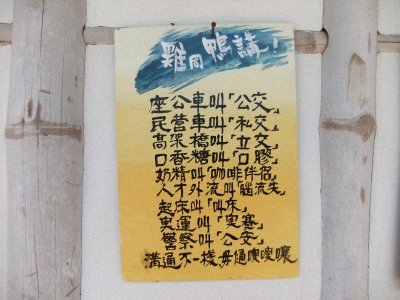 雞同鴨講!
座公車叫「公交」
民營車叫「私交」
高架橋叫「立交」
口香糖叫「口膠」
奶精叫「咖啡伴侶」
人才外流叫「腦流失」
起床叫「叫床」
奧運叫「奧賽」
警察叫「公安」
溝通不一樣毋通嗳嗳嚷